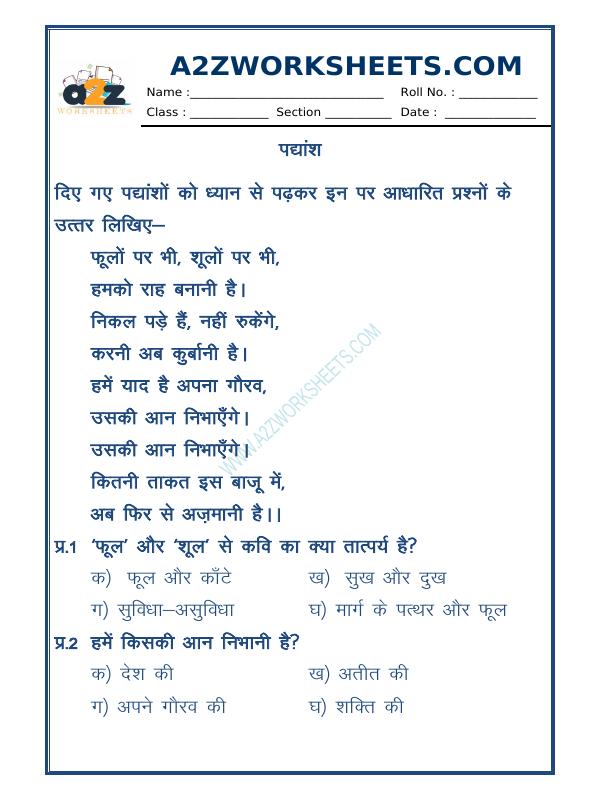 a2z
WORKSHEETS
A2ZWORKSHEETS.COM
Name :____________________________ Roll No. : ____________
Class : ____________ Section __________ Date : ______________
पद्यांश
दिए गए पद्यांशों को ध्यान से पढ़कर इन पर आधारित प्रश्नों के
उत्तर लिखिए–
फूलों पर भी, शूलों पर भी,
हमको राह बनानी है।
निकल पड़े हैं, नहीं रुकेंगे,
करनी अब कुर्बानी है।
हमें याद है अपना गौरव,
उसकी आन निभाएँगे।
उसकी आन निभाएँगे।
कितनी ताकत इस बाजू में,
अब फिर से अज़मानी है।।
WWW.A2ZWORKSHEETS.COM
प्र.1 ‘फूल’ और ‘शूल’ से कवि का क्या तात्पर्य है?
क) फूल और काँटे ख) सुख और दुख
ग) सुविधा–असुविधा घ) मार्ग के पत्थर और फूल
प्र.2 हमें किसकी आन निभानी है?
क) देश की ख) अतीत की
ग) अपने गौरव की घ) शक्ति की